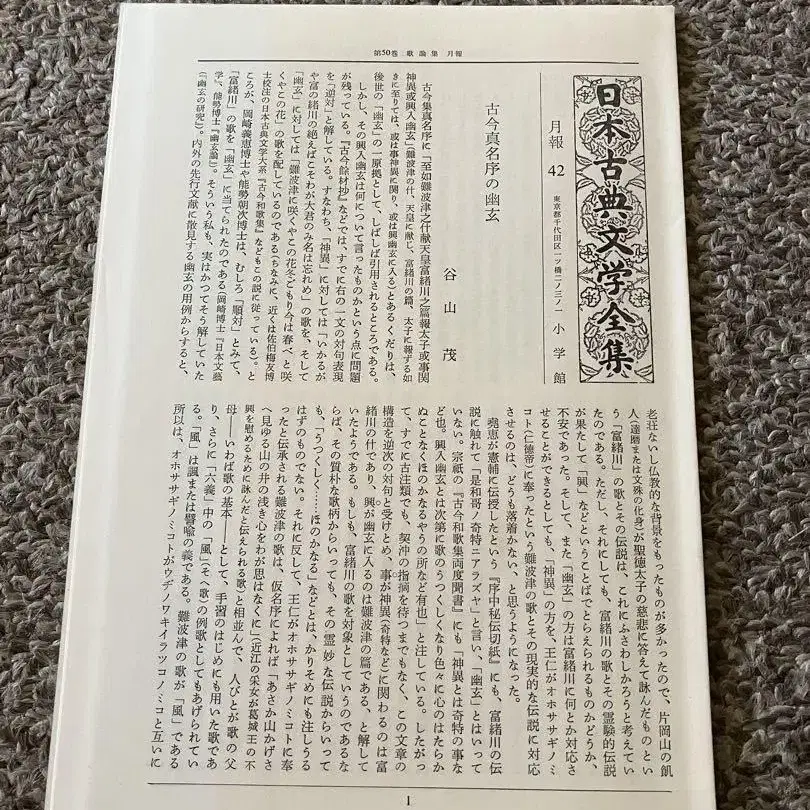 第50巻 歌論集 月報
日本古典文学全集
月報 42
東京都千代田区一ツ橋二ノ三ノ一 小学館
古今真名序の幽玄
谷山茂
古今集真名序に「至如難波津之什献天皇富緒川之篇報太子或事関
神異或興入幽玄」(難波津の什、天皇に献じ、富緒川の篇、太子に報ずる如
きに至りては、或は事神異に関り、或は興幽玄に入る)とあるくだりは、
後世の「幽玄」の一原拠として、しばしば引用されるところである。
しかし、その興入幽玄は何について言ったものかという点に問題
が残っている。『古今餘材抄』などでは、すでに右の一文の対句表現
を「逆対」と解している。すなわち、「神異」に対しては「いかるが
や富の緒川の絶えばこそわが大君のみ名は忘れめ」の歌を、そして
「幽玄」に対しては「難波津に咲くやこの花冬ごもり今は春べと咲
くやこの花」の歌を配しているのである(ちなみに、近くは佐伯梅友博
士校注の日本古典文学大系『古今和歌集』などもこの説に従っている)。と
ころが、岡崎義恵博士や能勢朝次博士は、むしろ「順対」とみて、
「富緒川」の歌を「幽玄」に当てられたのである(岡崎博士『日本文藝
学』、能勢博士『幽玄論』)。そういう私も、実はかつてそう解していた
(『幽玄の研究』)。内外の先行文献に散見する幽玄の用例からすると、
老荘ないし仏教的な背景をもったものが多かったので、片岡山の飢
人(達磨または文殊の化身)が聖徳太子の慈悲に答えて詠んだものとい
う「富緒川」の歌とその伝説は、これにふさわしかろうと考えてい
たのである。ただし、それにしても、富緒川の歌とその霊験的伝説
が果たして「興」などということばでとらえられるものかどうか、
不安であった。そして、また「幽玄」の方は富緒川に何とか対応さ
せることができるとしても、「神異」の方を、王仁がオホササギノミ
コト(仁徳帝)に奉ったという難波津の歌とその現実的な伝説に対応
させるのは、どうも落着かない、と思うようになった。
堯恵が憲輔に伝授したという『序中秘伝切紙』にも、富緒川の伝
説に触れて「是和哥ノ奇特ニアラズヤ」と言い、「幽玄」とはいって
いない。宗祇の『古今和歌集両度聞書』にも「神異とは奇特の事な
ど也。興入幽玄とは次第に歌のうつくしくなり色々に心のはたらか
ぬことなくほのかなるやうの所など有也」と注している。したがっ
て、すでに古注類でも、契沖の指摘を待つまでもなく、この文章の
構造を逆次の対句と受けとめ、事が神異(奇特など)に関わるのは富
緒川の什であり、興が幽玄に入るのは難波津の篇である、と解して
いたようである。もしも、富緒川の歌を対象としていうのであるな
らば、その質朴な歌柄からいっても、その霊妙な伝説からいって
も、「うつくしく……ほのかなる」などとは、かりそめにも注しうる
はずのものでない。それに反して、王仁がオホササギノミコトに奉
ったと伝承される難波津の歌は、仮名序によれば「あさか山かげさ
へ見ゆる山の井の浅き心をわが思はなくに」(近江の采女が葛城王の不
興を慰めるために詠んだと伝えられる歌)と相並んで、人びとが歌の父
母――いわば歌の基本――として、手習のはじめにも用いた歌であ
り、さらに「六義」中の「風」(そへ歌)の例歌としてもあげられてい
る。「風」は諷または譬喩の義である。難波津の歌が「風」である
所以は、オホササギノミコトがウヂノワキイラツコノミコと互いに
1